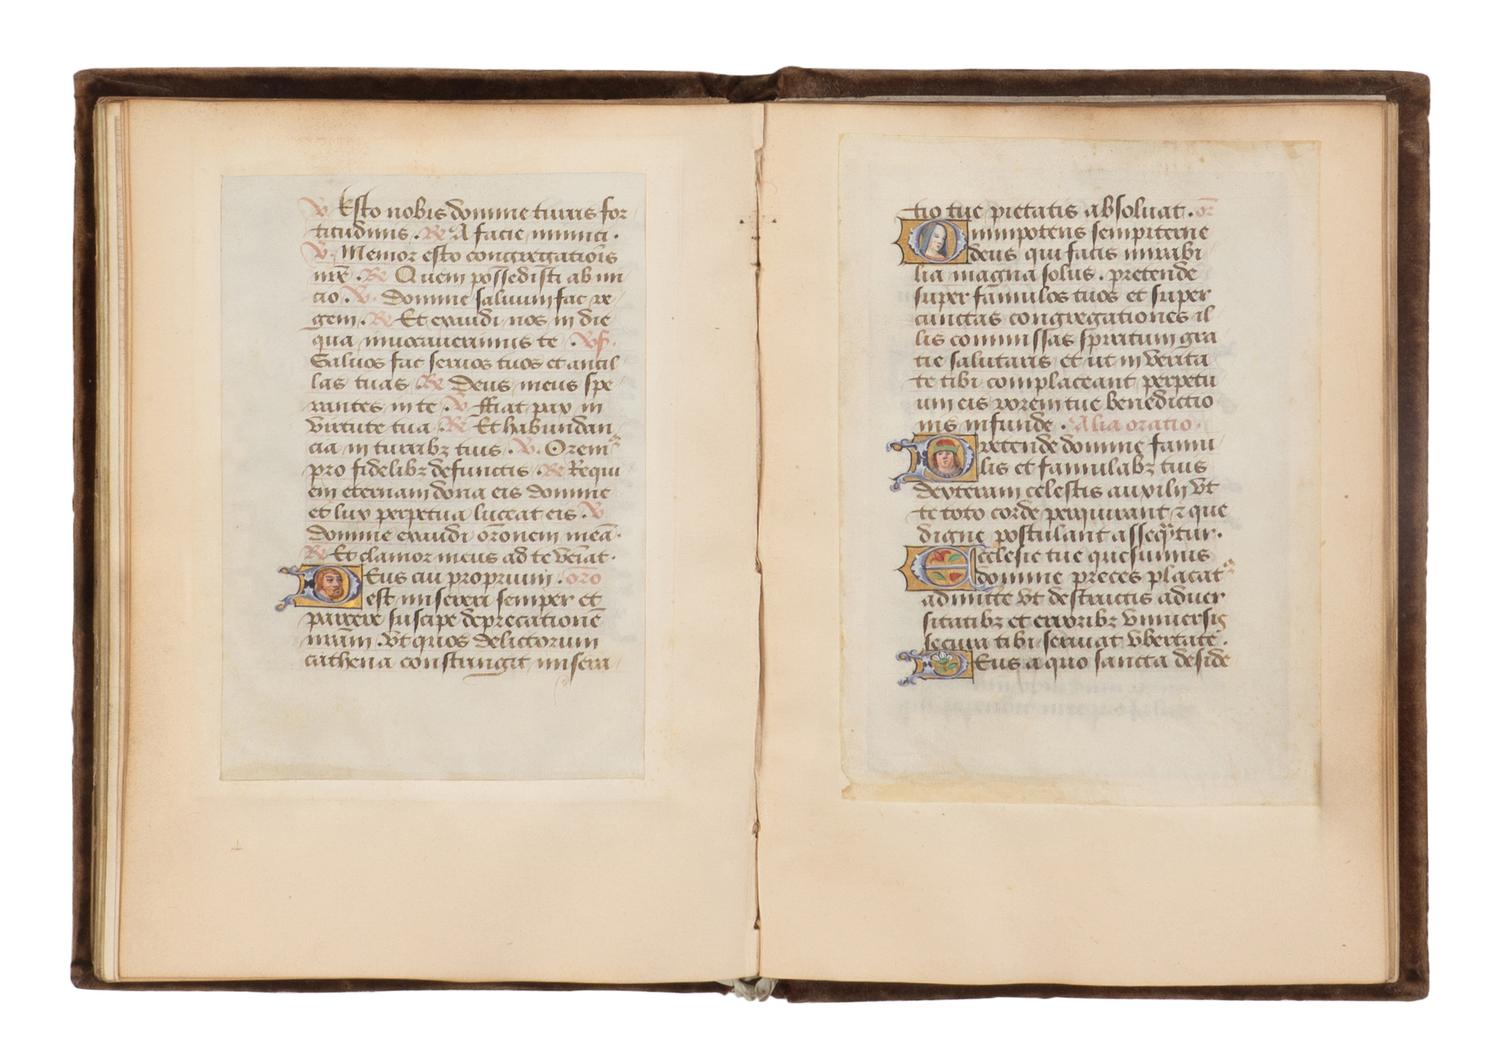 V Esto nobis domine turris for
titudinis . Re A facie inimici .
V . Memor esto congregatiois
nr̄e . Re Quem possedisti ab ini
cio . V . domine saluum fac re
gem . Re Et exaudi nos in die
qua inuocauerimus te . Vs̄ .
Saluos fac seruos tuos et ancil
las tuas Re Deus meus spe
rantes in te . V ffiat pax in
virtute tua . Re Et habundan
cia in turribꝫ tuis . V . Oremꝰ
pro fidelibꝫ defunctis . Re Requi
em eternam dona eis domine
et lux perpetua luceat eis . V
domine exaudi orōnem meā .
Re Et clamor meus ad te veīat .
DEus cui proprium . oro
est misereri semper et
parcere suscipe deprecationē
nrām . vt quos delictorum
cathena constringit misera
tio tue pietatis absoluat . or̄
Omnipotens sempiterne
deus qui facis mirabi
lia magna solus . pretende
super famulos tuos et super
cunctas congregationes il
lis commissas spiritum gra
tie salutaris et ut in verita
te tibi complaceant perpetu
um eis rorem tue benedictio
nis infunde . Alia oratio .
Pretende domine famu
lis et famulabꝫ tuis
dexteram celestis auxilij vt
te toto corde perquirant ꝛ que
digne postulant assequātur .
Ecclesie tue quesumus
domine preces placatꝰ
admitte vt destructis aduer
sitatibꝫ et erroribꝫ vniuersis
secura tibi seruiat libertate .
DEus a quo sancta deside